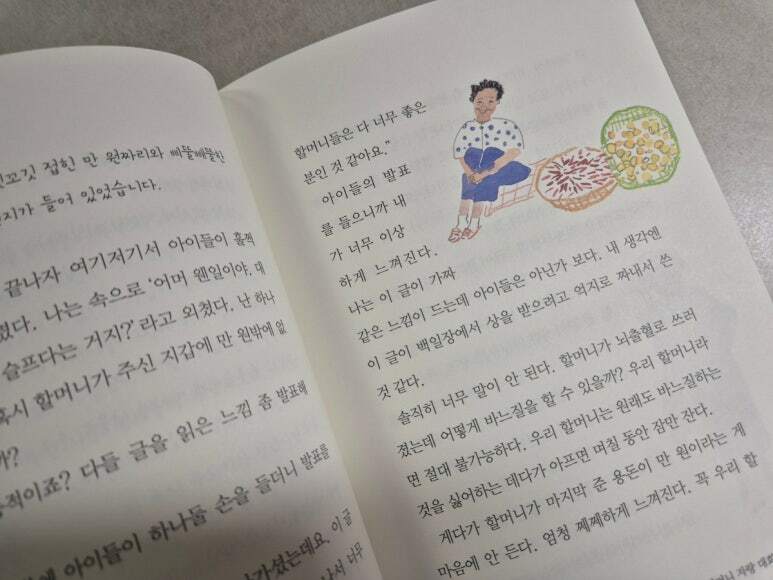 접힌 만 원짜리와 삐뚤빼뚤한
들어 있었습니다.
끝나자 여기저기서 아이들이 훌쩍
나는 속으로 '어머 웬일이야, 대
슬프다는 거지?' 라고 외쳤다. 난 하나
혹시 할머니가 주신 지갑에 만 원밖에 없
까?
다들 글을 읽은 느낌 좀 발표해
아이들이 하나둘 손을 들더니 발표를
이 글
너무
할머니들은 다 너무 좋은
분인 것 같아요."
아이들의 발표
를 들으니까 내
가 너무 이상
하게 느껴진다.
나는 이 글이 가짜
같은 느낌이 드는데 아이들은 아닌가 보다. 내 생각엔
이 글이 백일장에서 상을 받으려고 억지로 짜내서 쓴
것 같다.
솔직히 너무 말이 안 된다. 할머니가 뇌출혈로 쓰러
졌는데 어떻게 바느질을 할 수 있을까? 우리 할머니라
면 절대 불가능하다. 우리 할머니는 원래도 바느질하는
것을 싫어하는 데다가 아프면 며칠 동안 잠만 잔다.
게다가 할머니가 마지막 준 용돈이 만 원이라는 게
마음에 안 든다. 엄청 쩨쩨하게 느껴진다. 꼭 우리 할
자랑